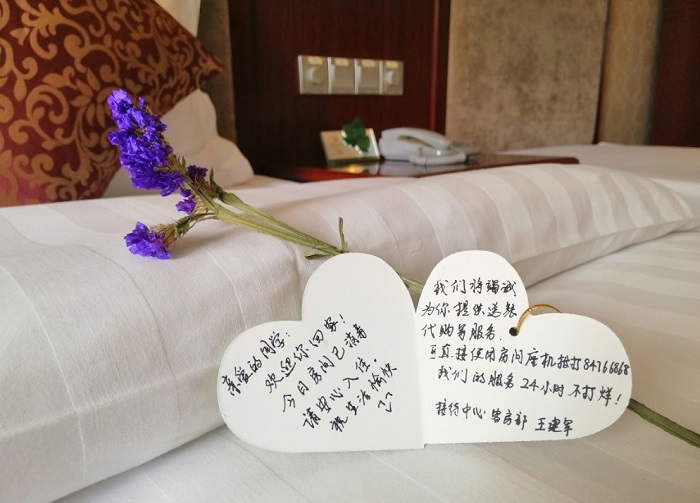 亲爱的同学：
欢迎你回家！
今日房间已消毒
请安心入住。
祝生活愉快
我们将竭诚
为你提供送餐
代购等服务.
可直接使用房间座机拨打84766868
我们的服务24小时不打烊！
接待中心 客房部 王建军